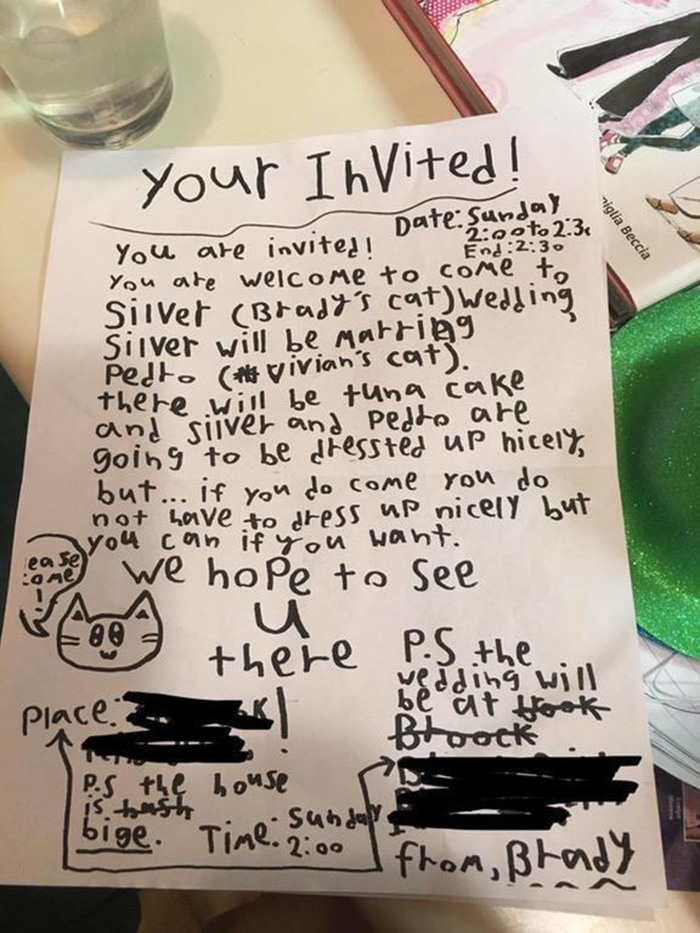 Your Invited!
Date: Sunday
2:00 to 2:30
End: 2:30
You are invited!
You are welcome to come to
Silver (Brady's cat) Wedding,
Silver will be Marring
Pedro (Vivian's cat).
there will be tuna cake
and Silver and Pedro are
going to be dressted up nicely,
but... if you do come you do
not have to dress up nicely but
you can if you want.
We hope to see
u
there
ease
come
!
P.S the
wedding will
be at
Broock
Place:
!
P.S the house
is
bige.
Time: Sunday
2:00
from, Brady
iglia Beccia